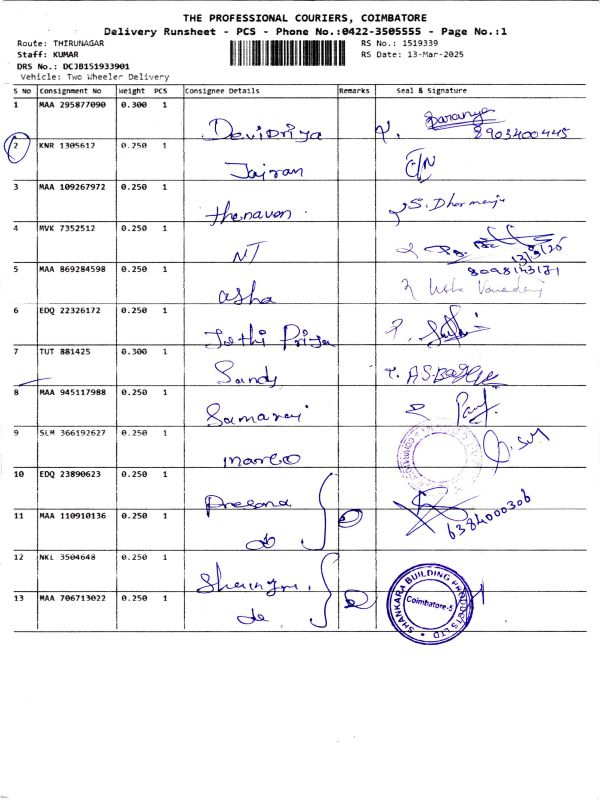 THE PROFESSIONAL COURIERS, COIMBATORE
Delivery Runsheet - PCS - Phone No.:0422-3505555 - Page No.:1
Route: THIRUNAGAR
RS No.: 1519339
Staff: KUMAR
RS Date: 13-Mar-2025
DRS No.: DCJB151933901
Vehicle: Two Wheeler Delivery
S No Consignment No Weight PCS Consignee Details Remarks Seal & Signature
1 MAA 295877090 0.300 1 Devipriya Saranya 8903400445
2 KNR 1305612 0.250 1 Jairam
3 MAA 109267972 0.250 1 thenavan S. Dharmaraju
4 MVK 7352512 0.250 1 NT 13/3/25
8098143171
5 MAA 869284598 0.250 1 asha Usha
6 EDQ 22326172 0.250 1 Jothi Priya
7 TUT 881425 0.300 1 Sandy
8 MAA 945117988 0.250 1 Samaraj
9 SLM 366192627 0.250 1 marco
10 EDQ 23890623 0.250 1 6384000306
11 MAA 110910136 0.250 1 do
12 NKL 3504648 0.250 1
13 MAA 706713022 0.250 1 do SHANKARA BUILDING PRODUCTS LTD Coimbatore-5